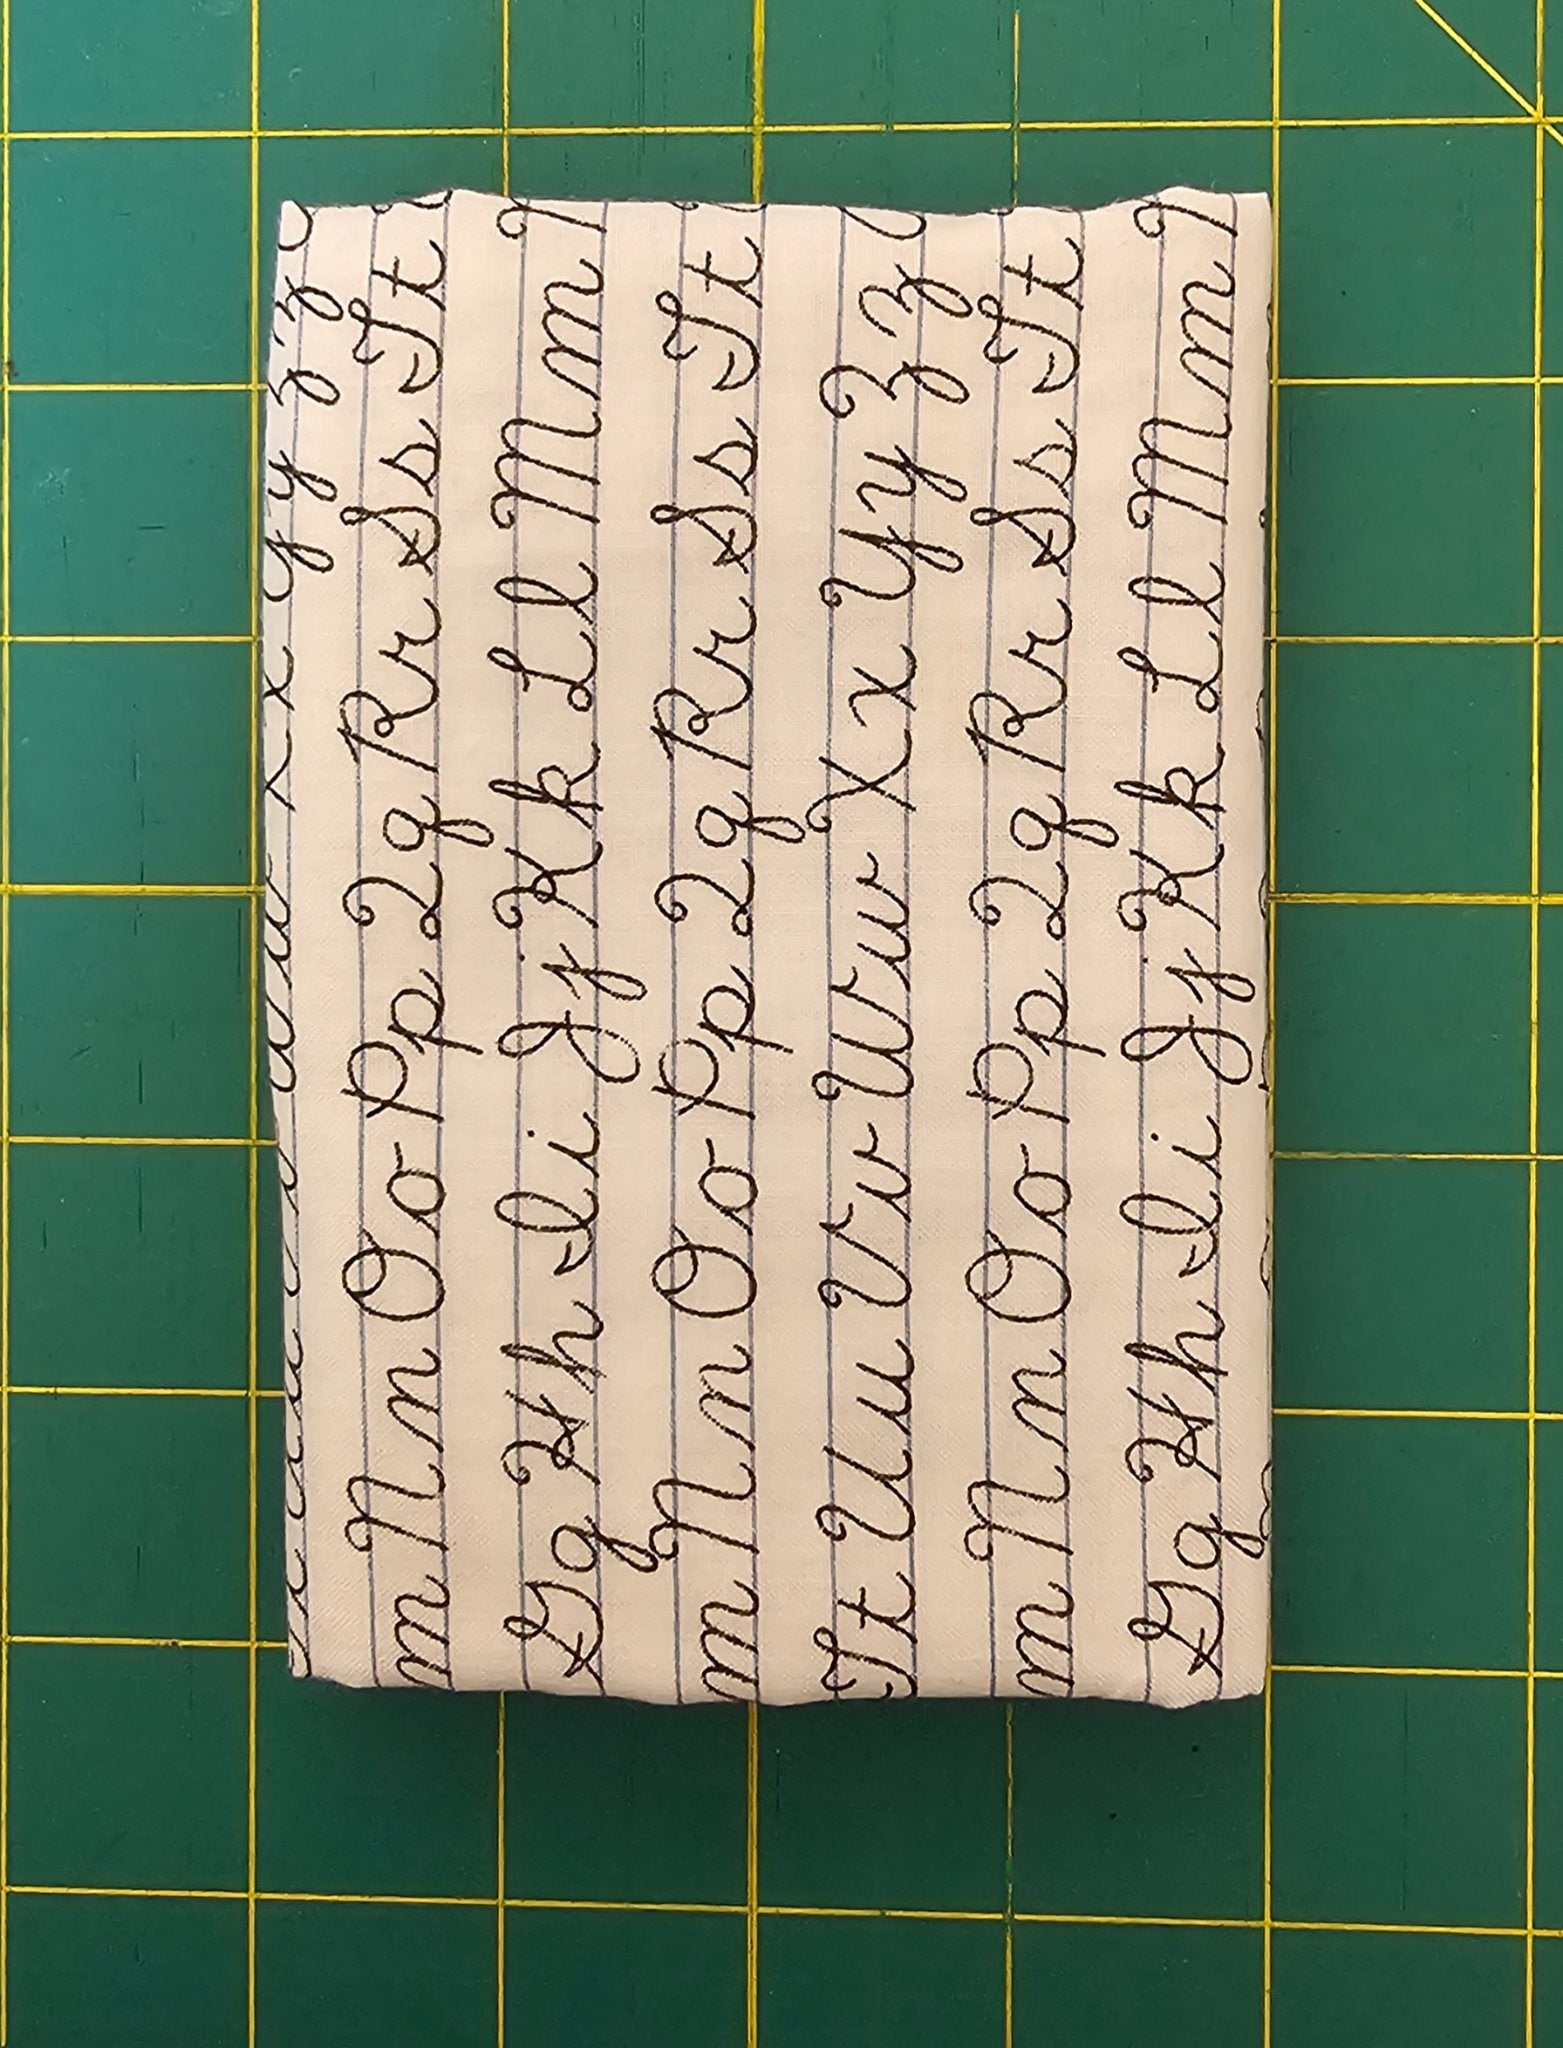 Xx Yy Zz
m Nn Oo Pp Qq Rr Ss Tt
Gg Hh Ii Jj Kk Ll Mm
m Nn Oo Pp Qq Rr Ss Tt
Tt Uu Vv Ww Xx Yy Zz
m Nn Oo Pp Qq Rr Ss Tt
Gg Hh Ii Jj Kk Ll Mm